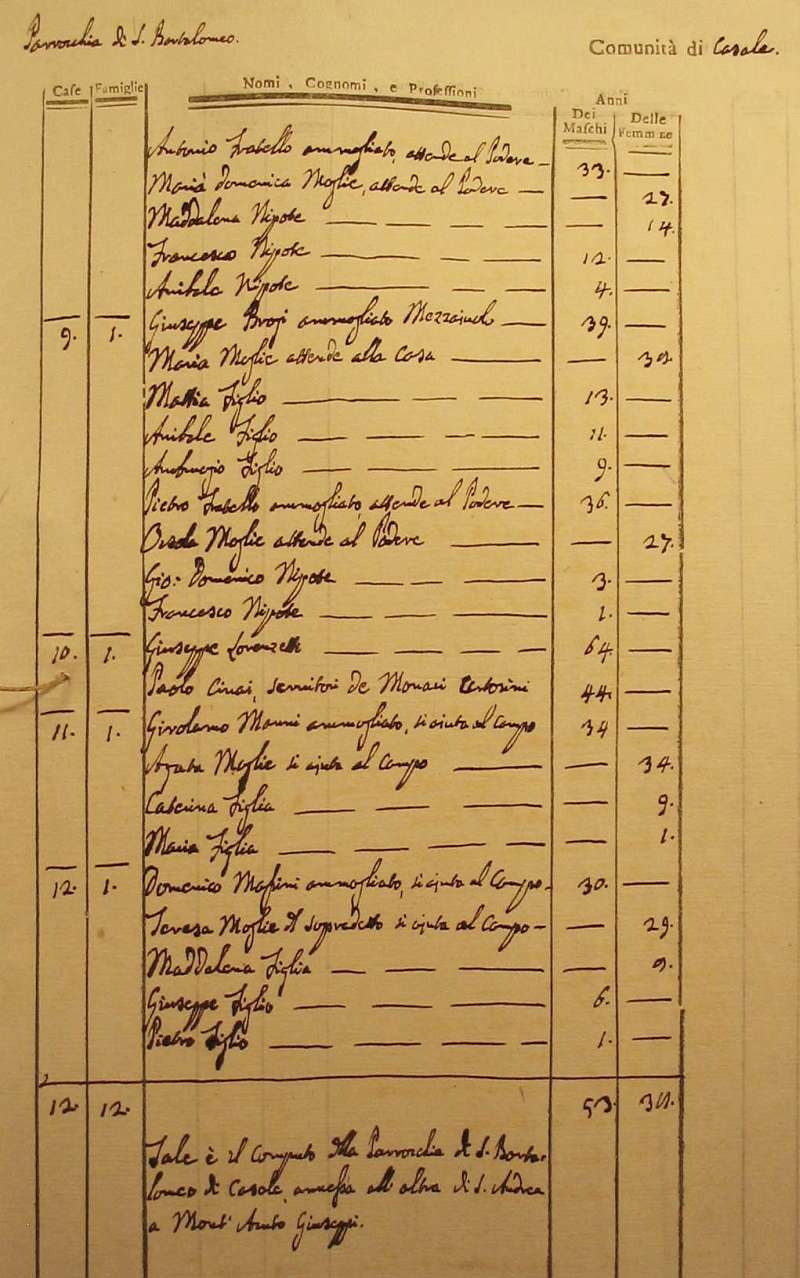 Parrochia di S. Bortolomeo.
Comunità di Casale.
Case Famiglie Nomi, Cognomi, e Professioni Anni
Dei Maschi Delle Femmine
Antonio Fratello ammogliato, attende al Podere 33.
Maria Domenica Moglie, attende al Podere 27.
Maddalena Nipote 14.
Francesco Nipote 12.
Anibale Nipote 4.
9. 1. Giuseppe ammogliato Mezzajuolo 39.
Maria Moglie attende alla Casa
Mattia Figlio 13.
Anibale Figlio 11.
Ambrogio Figlio 9.
Pietro Fratello ammogliato, attende al Podere 36.
Orsola Moglie attende al Podere 27.
Gio: Domenico Nipote 3.
Francesco Nipote 1.
10. 1. Giuseppe Lorenzetti 64.
Paolo servitori de Monaci Certosini 44.
11. 1. Girolamo Monni ammogliato, si ajuta al Campo 34
Agata Moglie si ajuta al Campo 34.
Catterina Figlia 9.
Maria Figlia 1.
12. 1. Domenico Massini ammogliato, si ajuta al Campo 30.
Teresa Moglie del sopradetto si ajuta al Campo 29.
Maddalena Figlia 9.
Giuseppe Figlio 6.
Pietro Figlio 1.
12. 12. 53.
Tale è il Computo della Parrochia di S. Borto-
lomeo di Casale, annessa all' altra di S. Andrea
a Mont' Acuto Giuseppi.